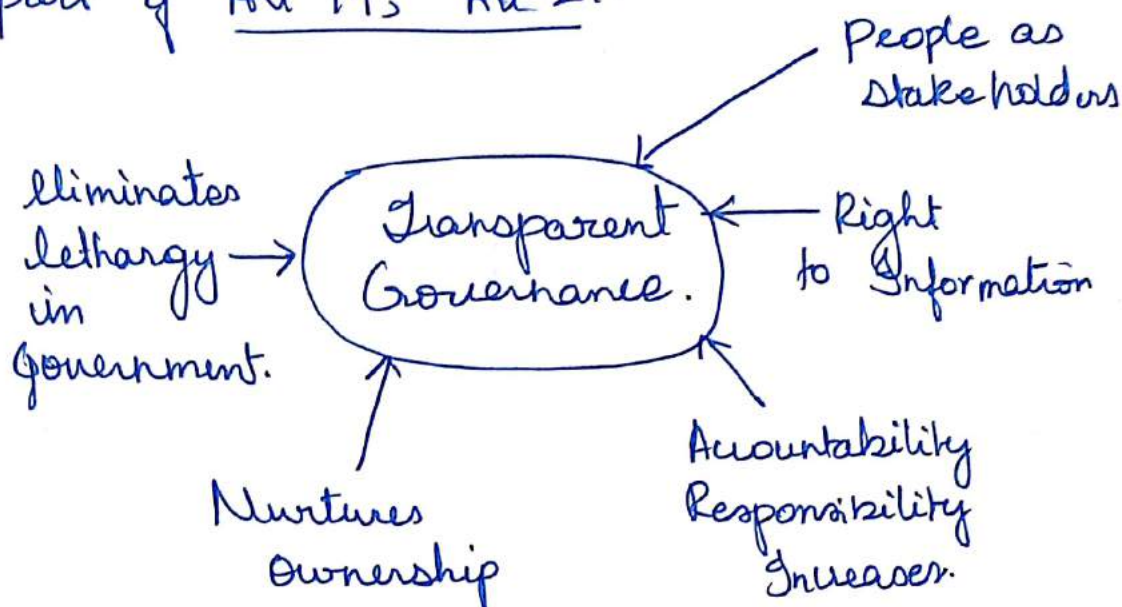 part of
People as
stakeholders
eliminates
lethargy
in
government.
Transparent
Governance.
Right
to Information
Nurtures
Ownership
Accountability
Responsibility
Increases.